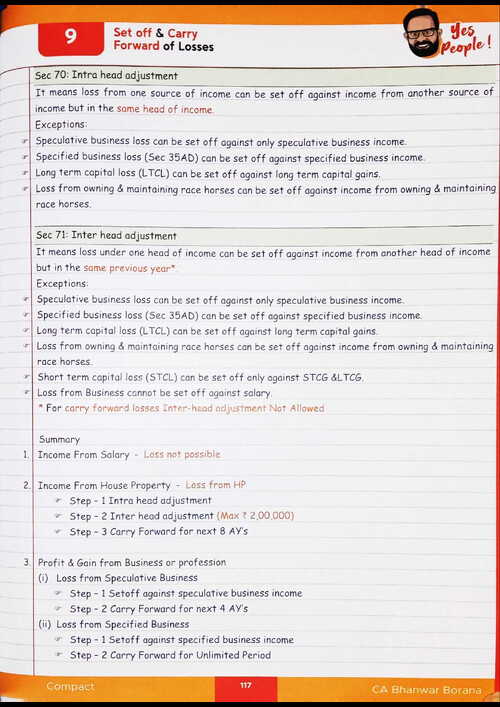 9
Set off & Carry
Forward of Losses
Yes
People!
Sec 70: Intra head adjustment
It means loss from one source of income can be set off against income from another source of
income but in the same head of income.
Exceptions:
☞ Speculative business loss can be set off against only speculative business income.
☞ Specified business loss (Sec 35AD) can be set off against specified business income.
☞ Long term capital loss (LTCL) can be set off against long term capital gains.
☞ Loss from owning & maintaining race horses can be set off against income from owning & maintaining
race horses.
Sec 71: Inter head adjustment
It means loss under one head of income can be set off against income from another head of income
but in the same previous year*.
Exceptions:
☞ Speculative business loss can be set off against only speculative business income.
☞ Specified business loss (Sec 35AD) can be set off against specified business income.
☞ Long term capital loss (LTCL) can be set off against long term capital gains.
☞ Loss from owning & maintaining race horses can be set off against income from owning & maintaining
race horses.
☞ Short term capital loss (STCL) can be set off only against STCG &LTCG.
☞ Loss from Business cannot be set off against salary.
* For carry forward losses Inter-head adjustment Not Allowed
Summary
1. Income From Salary - Loss not possible
2. Income From House Property - Loss from HP
☞ Step - 1 Intra head adjustment
☞ Step - 2 Inter head adjustment (Max ₹ 2,00,000)
☞ Step - 3 Carry Forward for next 8 AY's
3. Profit & Gain from Business or profession
(i) Loss from Speculative Business
☞ Step - 1 Setoff against speculative business income
☞ Step - 2 Carry Forward for next 4 AY's
(ii) Loss from Specified Business
☞ Step - 1 Setoff against specified business income
☞ Step - 2 Carry Forward for Unlimited Period
Compact
117
CA Bhanwar Borana